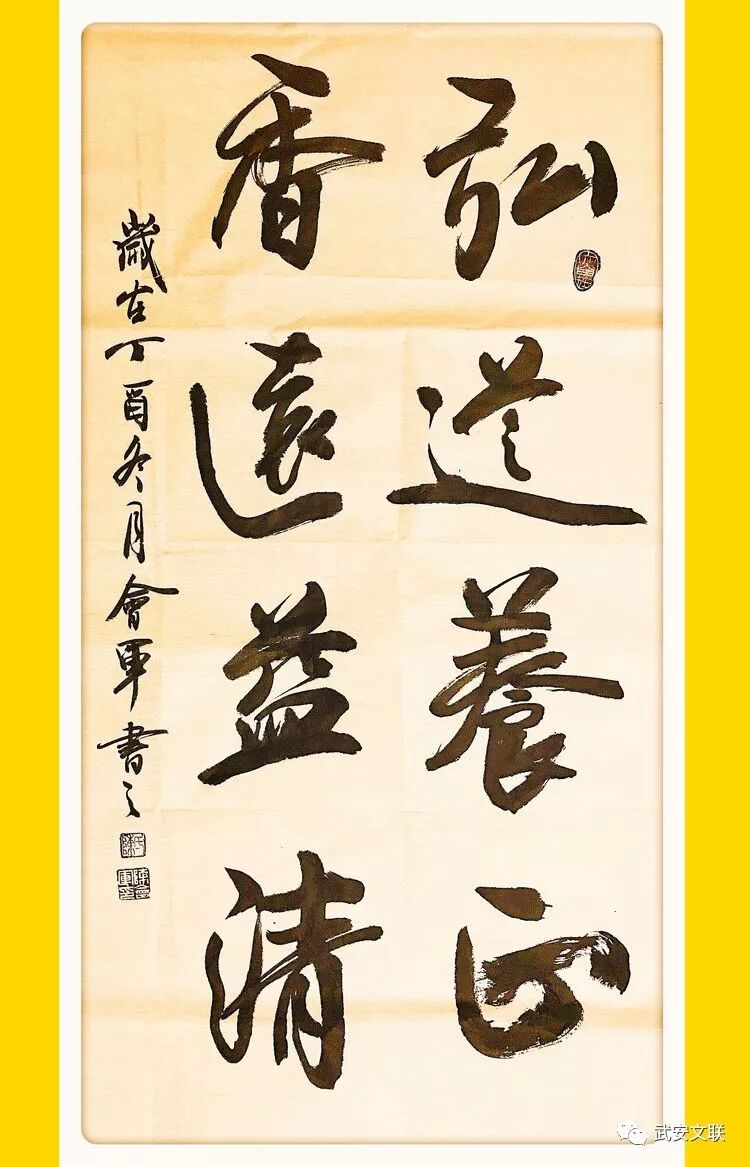 弘道養正
香遠益清
歲在丁酉冬月會軍書之
武安文联